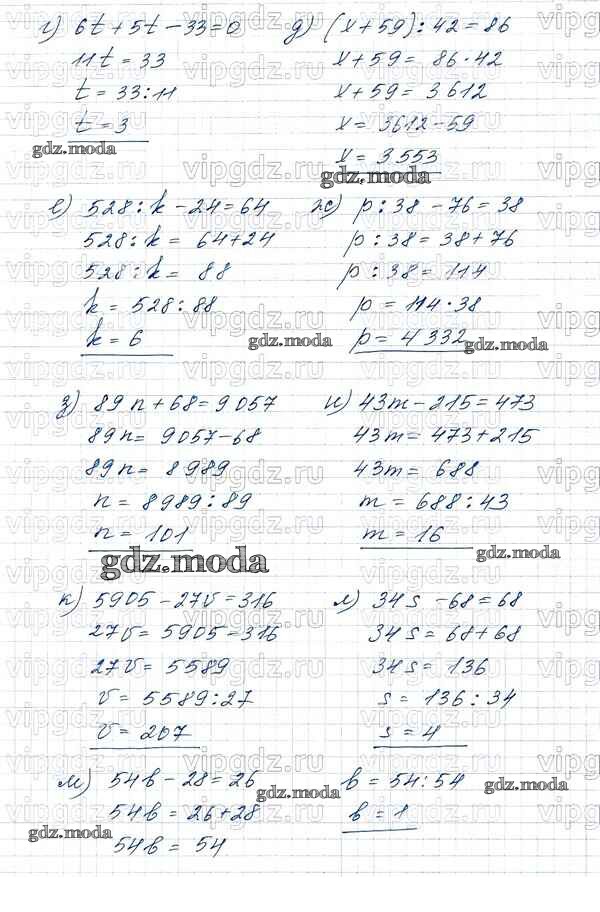 г) 6t + 5t - 33 = 0
11t = 33
t = 33 : 11
t = 3
gdz.moda
д) (x + 59) : 42 = 86
x + 59 = 86 · 42
x + 59 = 3612
x = 3612 - 59
x = 3553
gdz.moda
е) 528 : k - 24 = 64
528 : k = 64 + 24
528 : k = 88
k = 528 : 88
k = 6
gdz.moda
ж) p : 38 - 76 = 38
p : 38 = 38 + 76
p : 38 = 114
p = 114 · 38
p = 4332
gdz.moda
з) 89n + 68 = 9057
89n = 9057 - 68
89n = 8989
n = 8989 : 89
n = 101
gdz.moda
и) 43m - 215 = 473
43m = 473 + 215
43m = 688
m = 688 : 43
m = 16
gdz.moda
к) 5905 - 27v = 316
27v = 5905 = 316
27v = 5589
v = 5589 : 27
v = 207
л) 34s - 68 = 68
34s = 68 + 68
34s = 136
s = 136 : 34
s = 4
м) 54b - 28 = 26
gdz.moda
54b = 26 + 28
gdz.moda
54b = 54
b = 54 : 54
gdz.moda
b = 1
vipgdz.ru